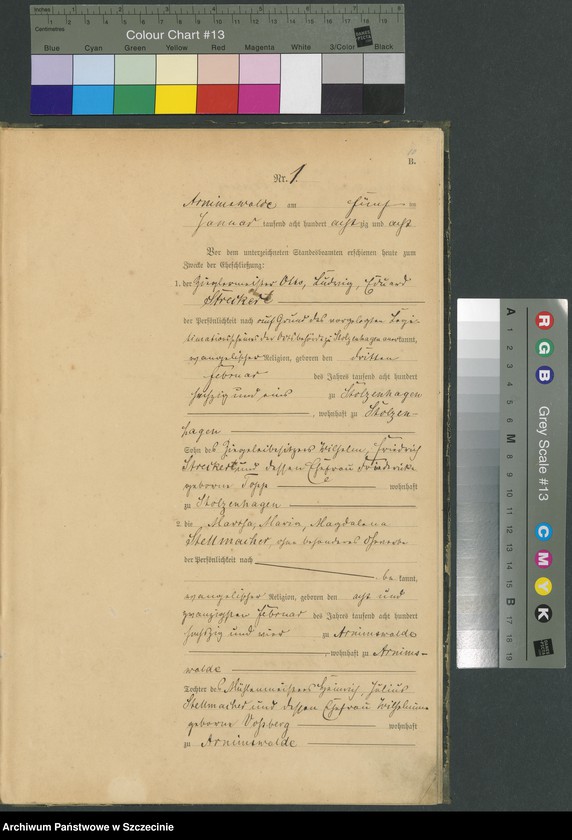 Inches 1 2 3 4 5 6 7 8
Centimetres 1 2 3 4 5 6 7 8 9 10 11 12 13 14 15 16 17 18 19
Colour Chart #13
Blue Cyan Green Yellow Red Magenta White 3/Color Black
B.
Nr. 1.
Arnimswalde am fünf ten
Januar tausend acht hundert achtzig und acht
Vor dem unterzeichneten Standesbeamten erschienen heute zum
Zwecke der Eheschließung:
1. der Zieglermeister Otto, Ludwig, Eduard
Strecker
der Persönlichkeit nach auf Grund des vorgelegten Legi-
timationscheins der Ortsbehörde zu Stolzenhagen anerkannt,
evangelischer Religion, geboren den dritten
Februar des Jahres tausend acht hundert
sechzig und eins zu Stolzenhagen
, wohnhaft zu Stolzen-
hagen
Sohn des Ziegeleibesitzers Wilhelm, Friedrich
Strecker und dessen Ehefrau Friederike
geborne Topp wohnhaft
zu Stolzenhagen
2. die Martha, Maria, Magdalena
Stellmacher, ohne besonderes Gewerbe
der Persönlichkeit nach
be kannt,
evangelischer Religion, geboren den acht und
zwanzigsten Februar des Jahres tausend acht hundert
sechszig und vier zu Arnimswalde
, wohnhaft zu Arnims-
walde
Tochter des Mühlenmeisters Heinrich, Julius
Stellmacher und dessen Ehefrau Wilhelmine
geborne Voßberg wohnhaft
zu Arnimswalde
A 1 2 3 4 5 6 M 8 9 10 11 12 13 14 15 B 17 18 19
R G B
Grey Scale #13
C M Y K
Archiwum Państwowe w Szczecinie